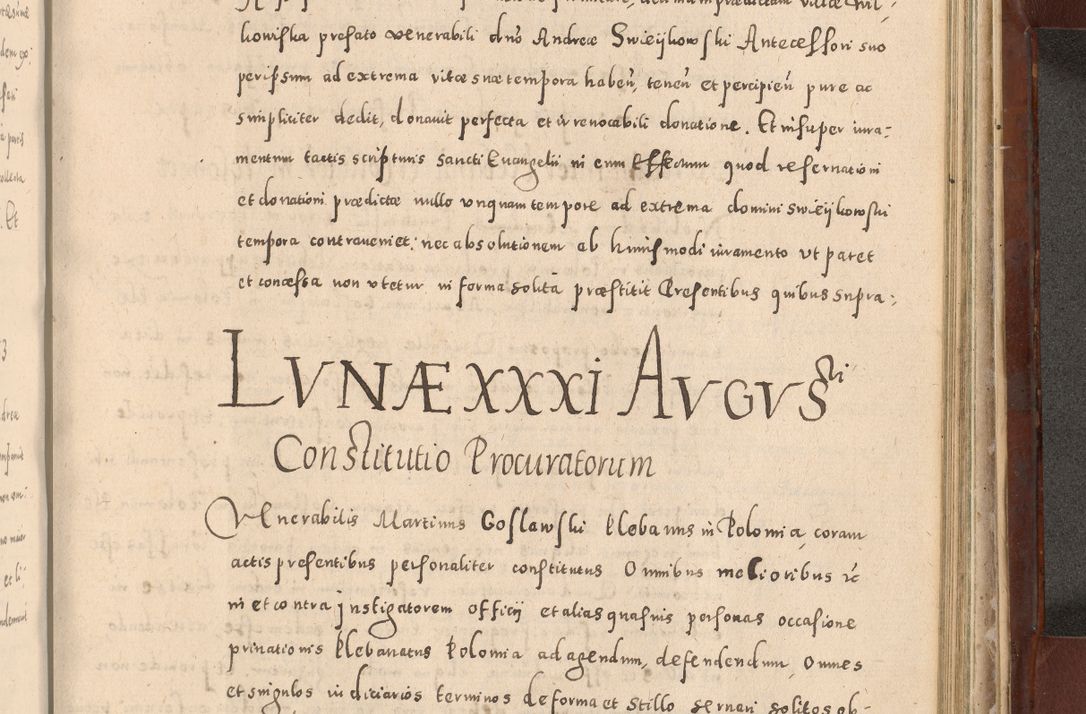 kowiſka prefato venerabili dnō Andreæ Swieijkowſki Anteceſſori suo
peripsum ad extrema vitæ suæ tempora habeñ, teneñ et percipieñ pure ac
simpliciter dedit, donauit perfecta et irreuocabili donatione. Et insuper iura-
mentum tactis scripturis sancti Euangelii in eum Effectum quod reſeruationi
et donationi prædictæ nullo vnquam tempore ad extrema domini swieijkowſki
tempora contraueniet; nec absolutionem ab huiuſmodi iuramento vt paret
et concessa non vtetur in forma solita præstitit Preſentibus quibus supra:,
LVNÆ XXXI AVGVSti
Constitutio Procuratorum
VEnerabilis Martinus Goſlawſki Plebanus in Polomia coram
actis preſentibus perſonaliter constitutus Omnibus melioribus ꝛc
in et contra jnstigatorem officij et alias quaſuis perſonas occaſione
priuationis Plebanatus Polomia ad agendum, defendendum, Omnes
et singulos iudiciarios terminos de forma et stillo seruari solitos ob-